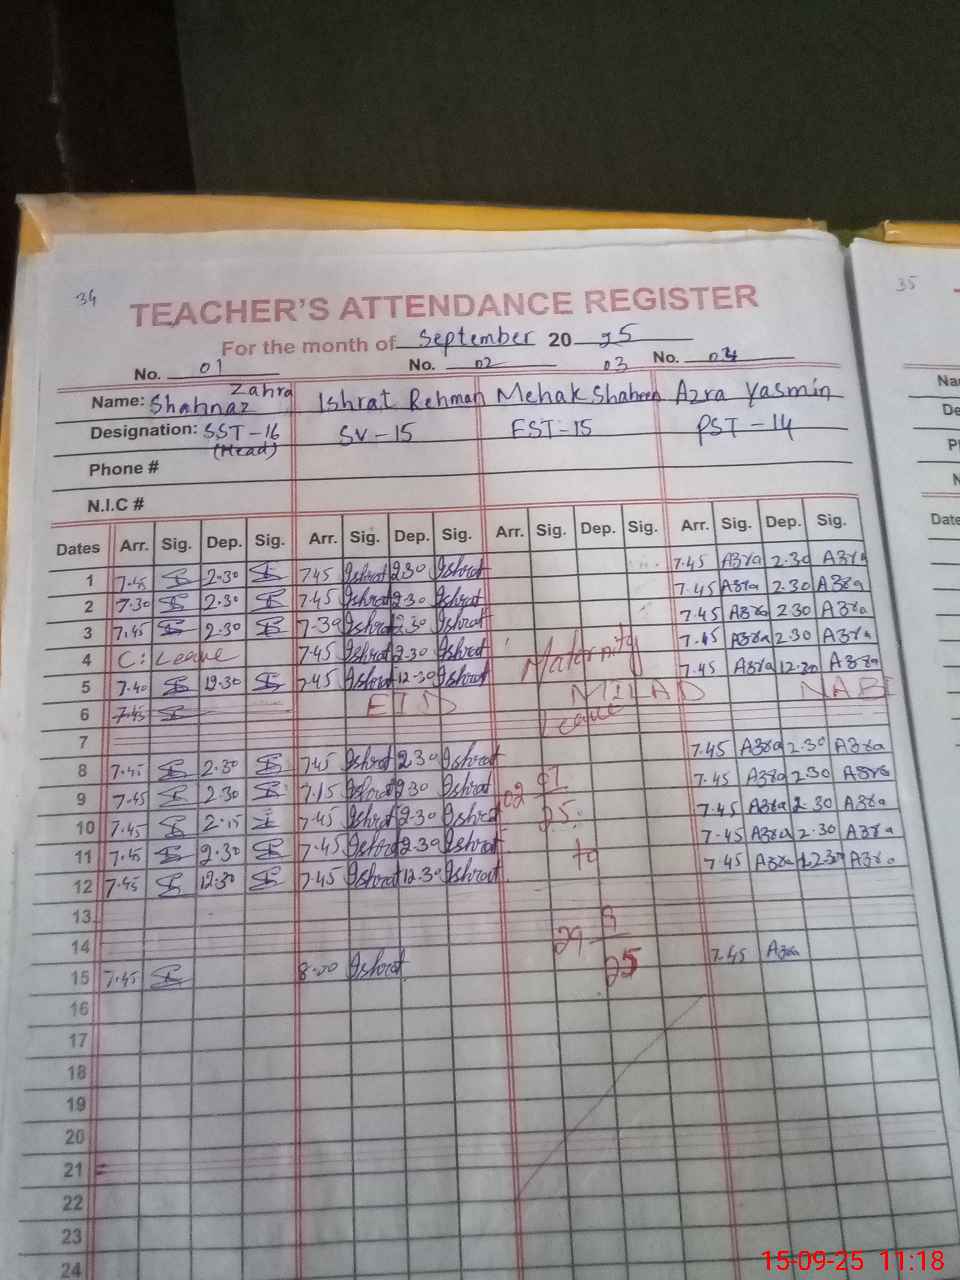 34
35
TEACHER'S ATTENDANCE REGISTER
For the month of September 2025
No. 01 No. 02 03 No. 04
Name: Shahnaz Zahra Ishrat Rehman Mehak Shaheen Azra Yasmin
Designation: SST-16 (Head) SV-15 EST-15 PST-14
Phone #
N.I.C #
Dates Arr. Sig. Dep. Sig. Arr. Sig. Dep. Sig. Arr. Sig. Dep. Sig. Arr. Sig. Dep. Sig.
1 7.45 2.30 7.45 Ishrat 2.30 Ishrat 7.45 Azra 2.30 Azra
2 7.30 2.30 7.45 Ishrat 2.30 Ishrat 7.45 Azra 2.30 Azra
3 7.45 2.30 7.30 Ishrat 2.30 Ishrat 7.45 Azra 2.30 Azra
4 C: Leave 7.45 Ishrat 2.30 Ishrat Maternity 7.45 Azra 2.30 Azra
5 7.40 12.30 7.45 Ishrat 12.30 Ishrat 7.45 Azra 12.30 Azra
6 7.45 EID MILAD NABI
Leave
7
8 7.45 2.30 7.45 Ishrat 2.30 Ishrat 7.45 Azra 2.30 Azra
9 7.45 2.30 7.15 Ishrat 2.30 Ishrat 02 7.45 Azra 2.30 Azra
10 7.45 2.15 7.45 Ishrat 2.30 Ishrat 25 7.45 Azra 2.30 Azra
11 7.45 2.30 7.45 Ishrat 2.30 Ishrat to 7.45 Azra 2.30 Azra
12 7.45 12.30 7.45 Ishrat 12.30 Ishrat 7.45 Azra 12.30 Azra
13
14 29 9
15 7.45 8.00 Ishrat 25 7.45 Azra
16
17
18
19
20
21
22
23
24
Date
15-09-25 11:18